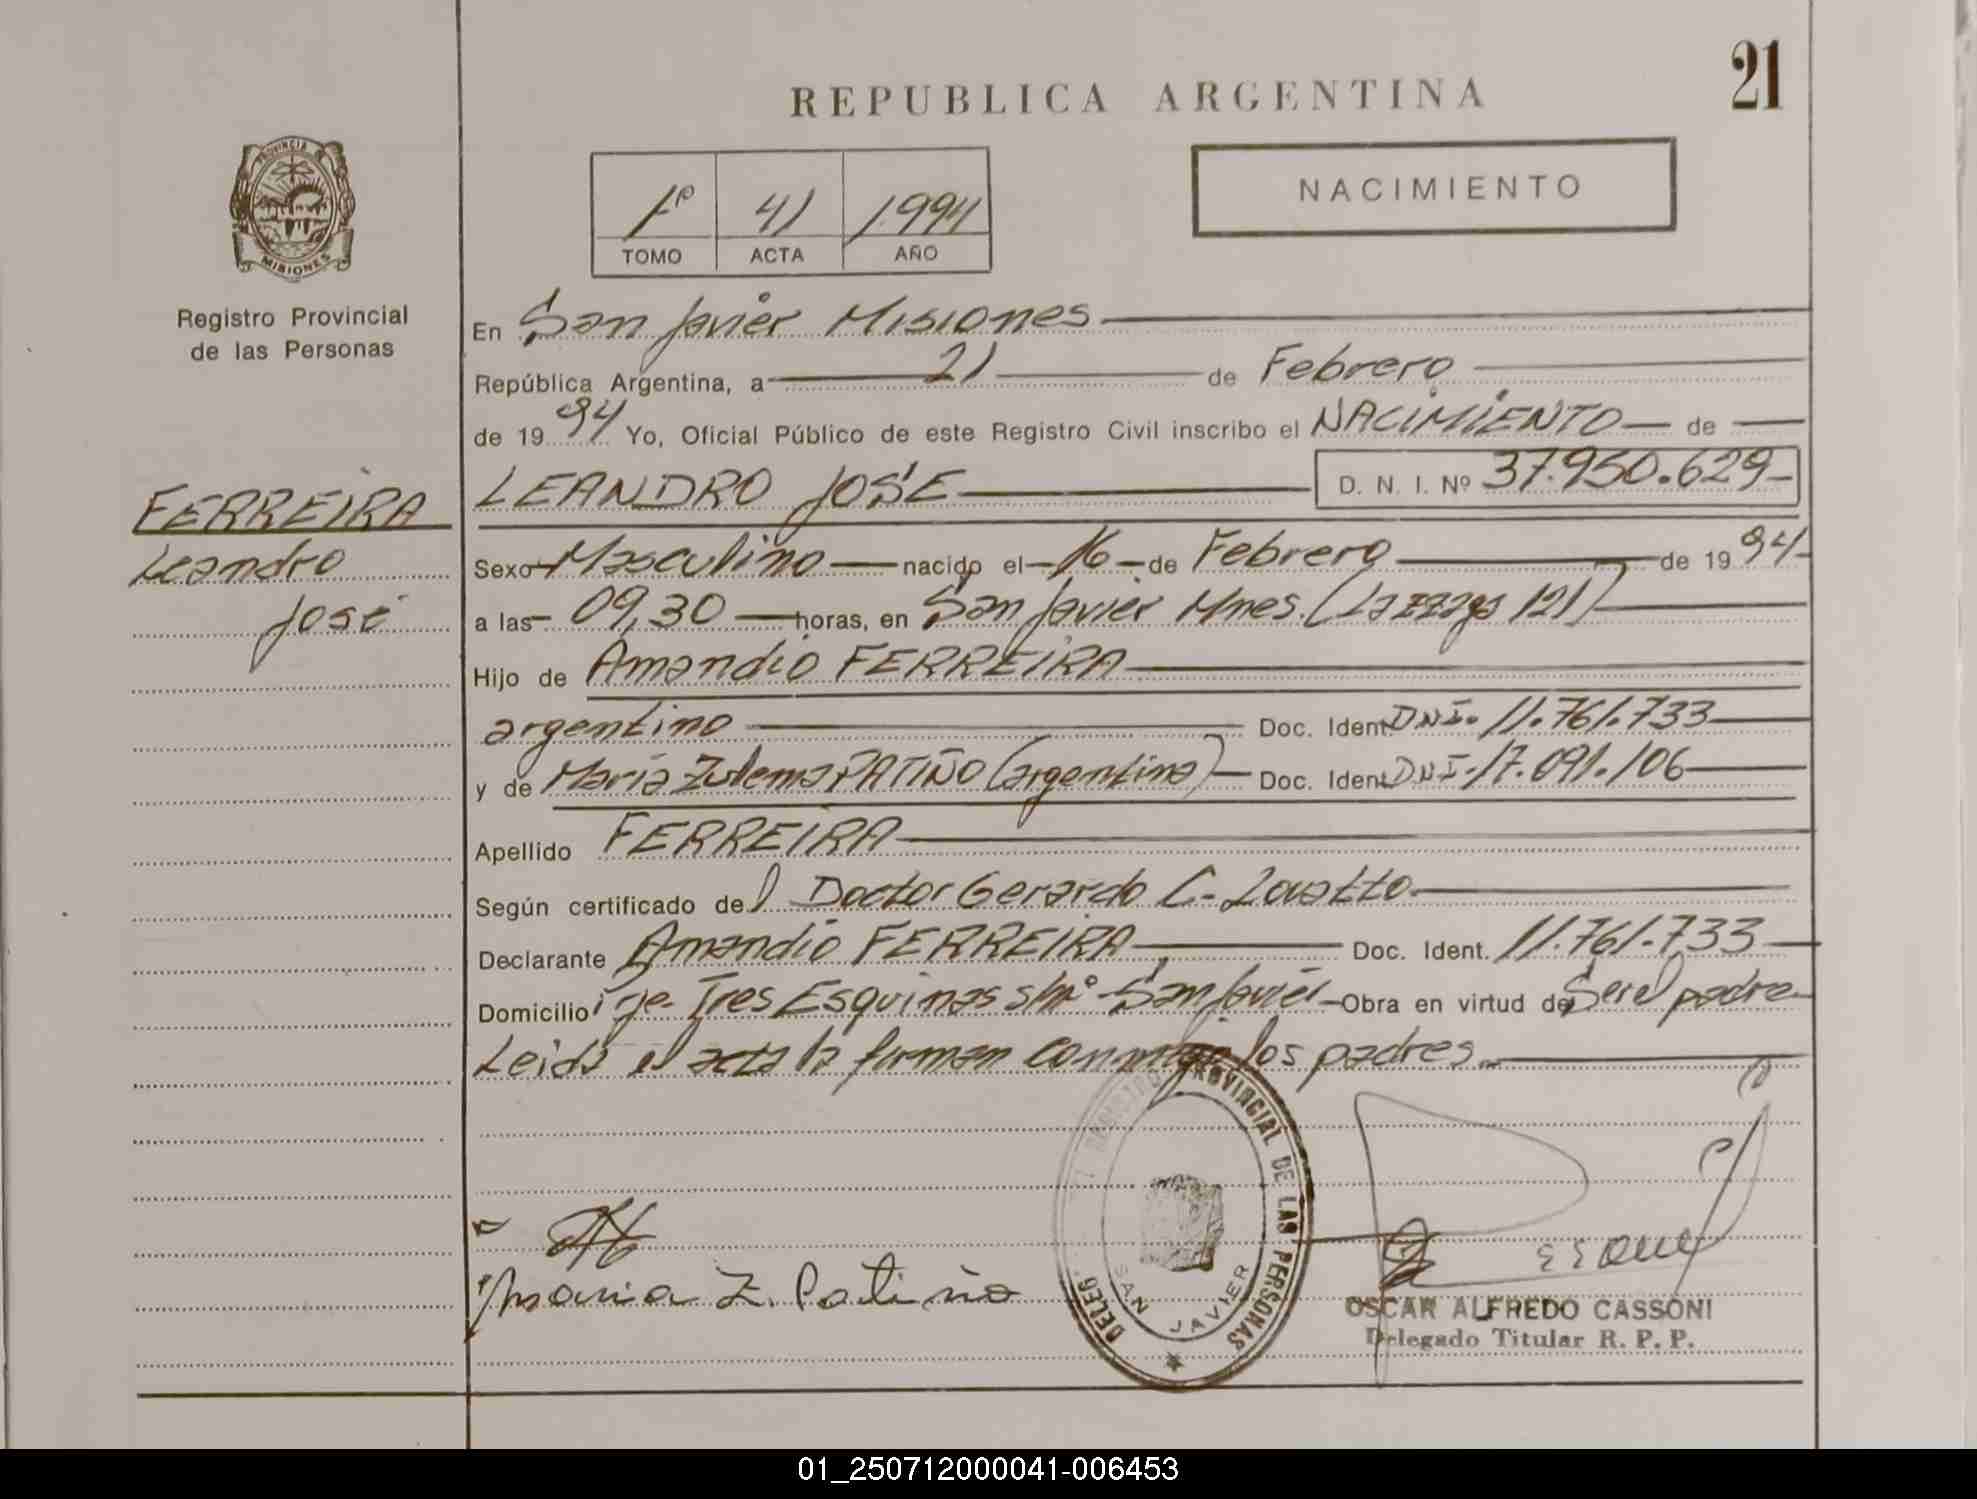 21
REPUBLICA ARGENTINA
PROVINCIA
MISIONES
1º 41 1994
TOMO ACTA AÑO
NACIMIENTO
Registro Provincial
de las Personas
En San Javier Misiones
República Argentina, a 21 de Febrero
de 19 94 Yo, Oficial Público de este Registro Civil inscribo el NACIMIENTO de
FERREIRA
Leandro
José
LEANDRO JOSÉ D. N. I. Nº 37.950.629
Sexo Masculino nacido el 16 de Febrero de 19 94
a las 09,30 horas, en San Javier Mnes. 121)
Hijo de Amandio FERREIRA
argentino Doc. Ident DNI. 11.761.733
y de María Zulema PATIÑO (argentina) Doc. Ident DNI. 17.091.106
Apellido FERREIRA
Según certificado del Doctor Gerardo C. Lovatto
Declarante Amandio FERREIRA Doc. Ident. 11.761.733
Domicilio Tres Esquinas s/nº San Javier Obra en virtud de Ser el padre
Leida el acta la firman conmigo los padres
Maria Z. Patiño
DELEG. REGISTRO PROVINCIAL DE LAS PERSONAS
SAN JAVIER
OSCAR ALFREDO CASSONI
Delegado Titular R. P. P.
01_250712000041-006453